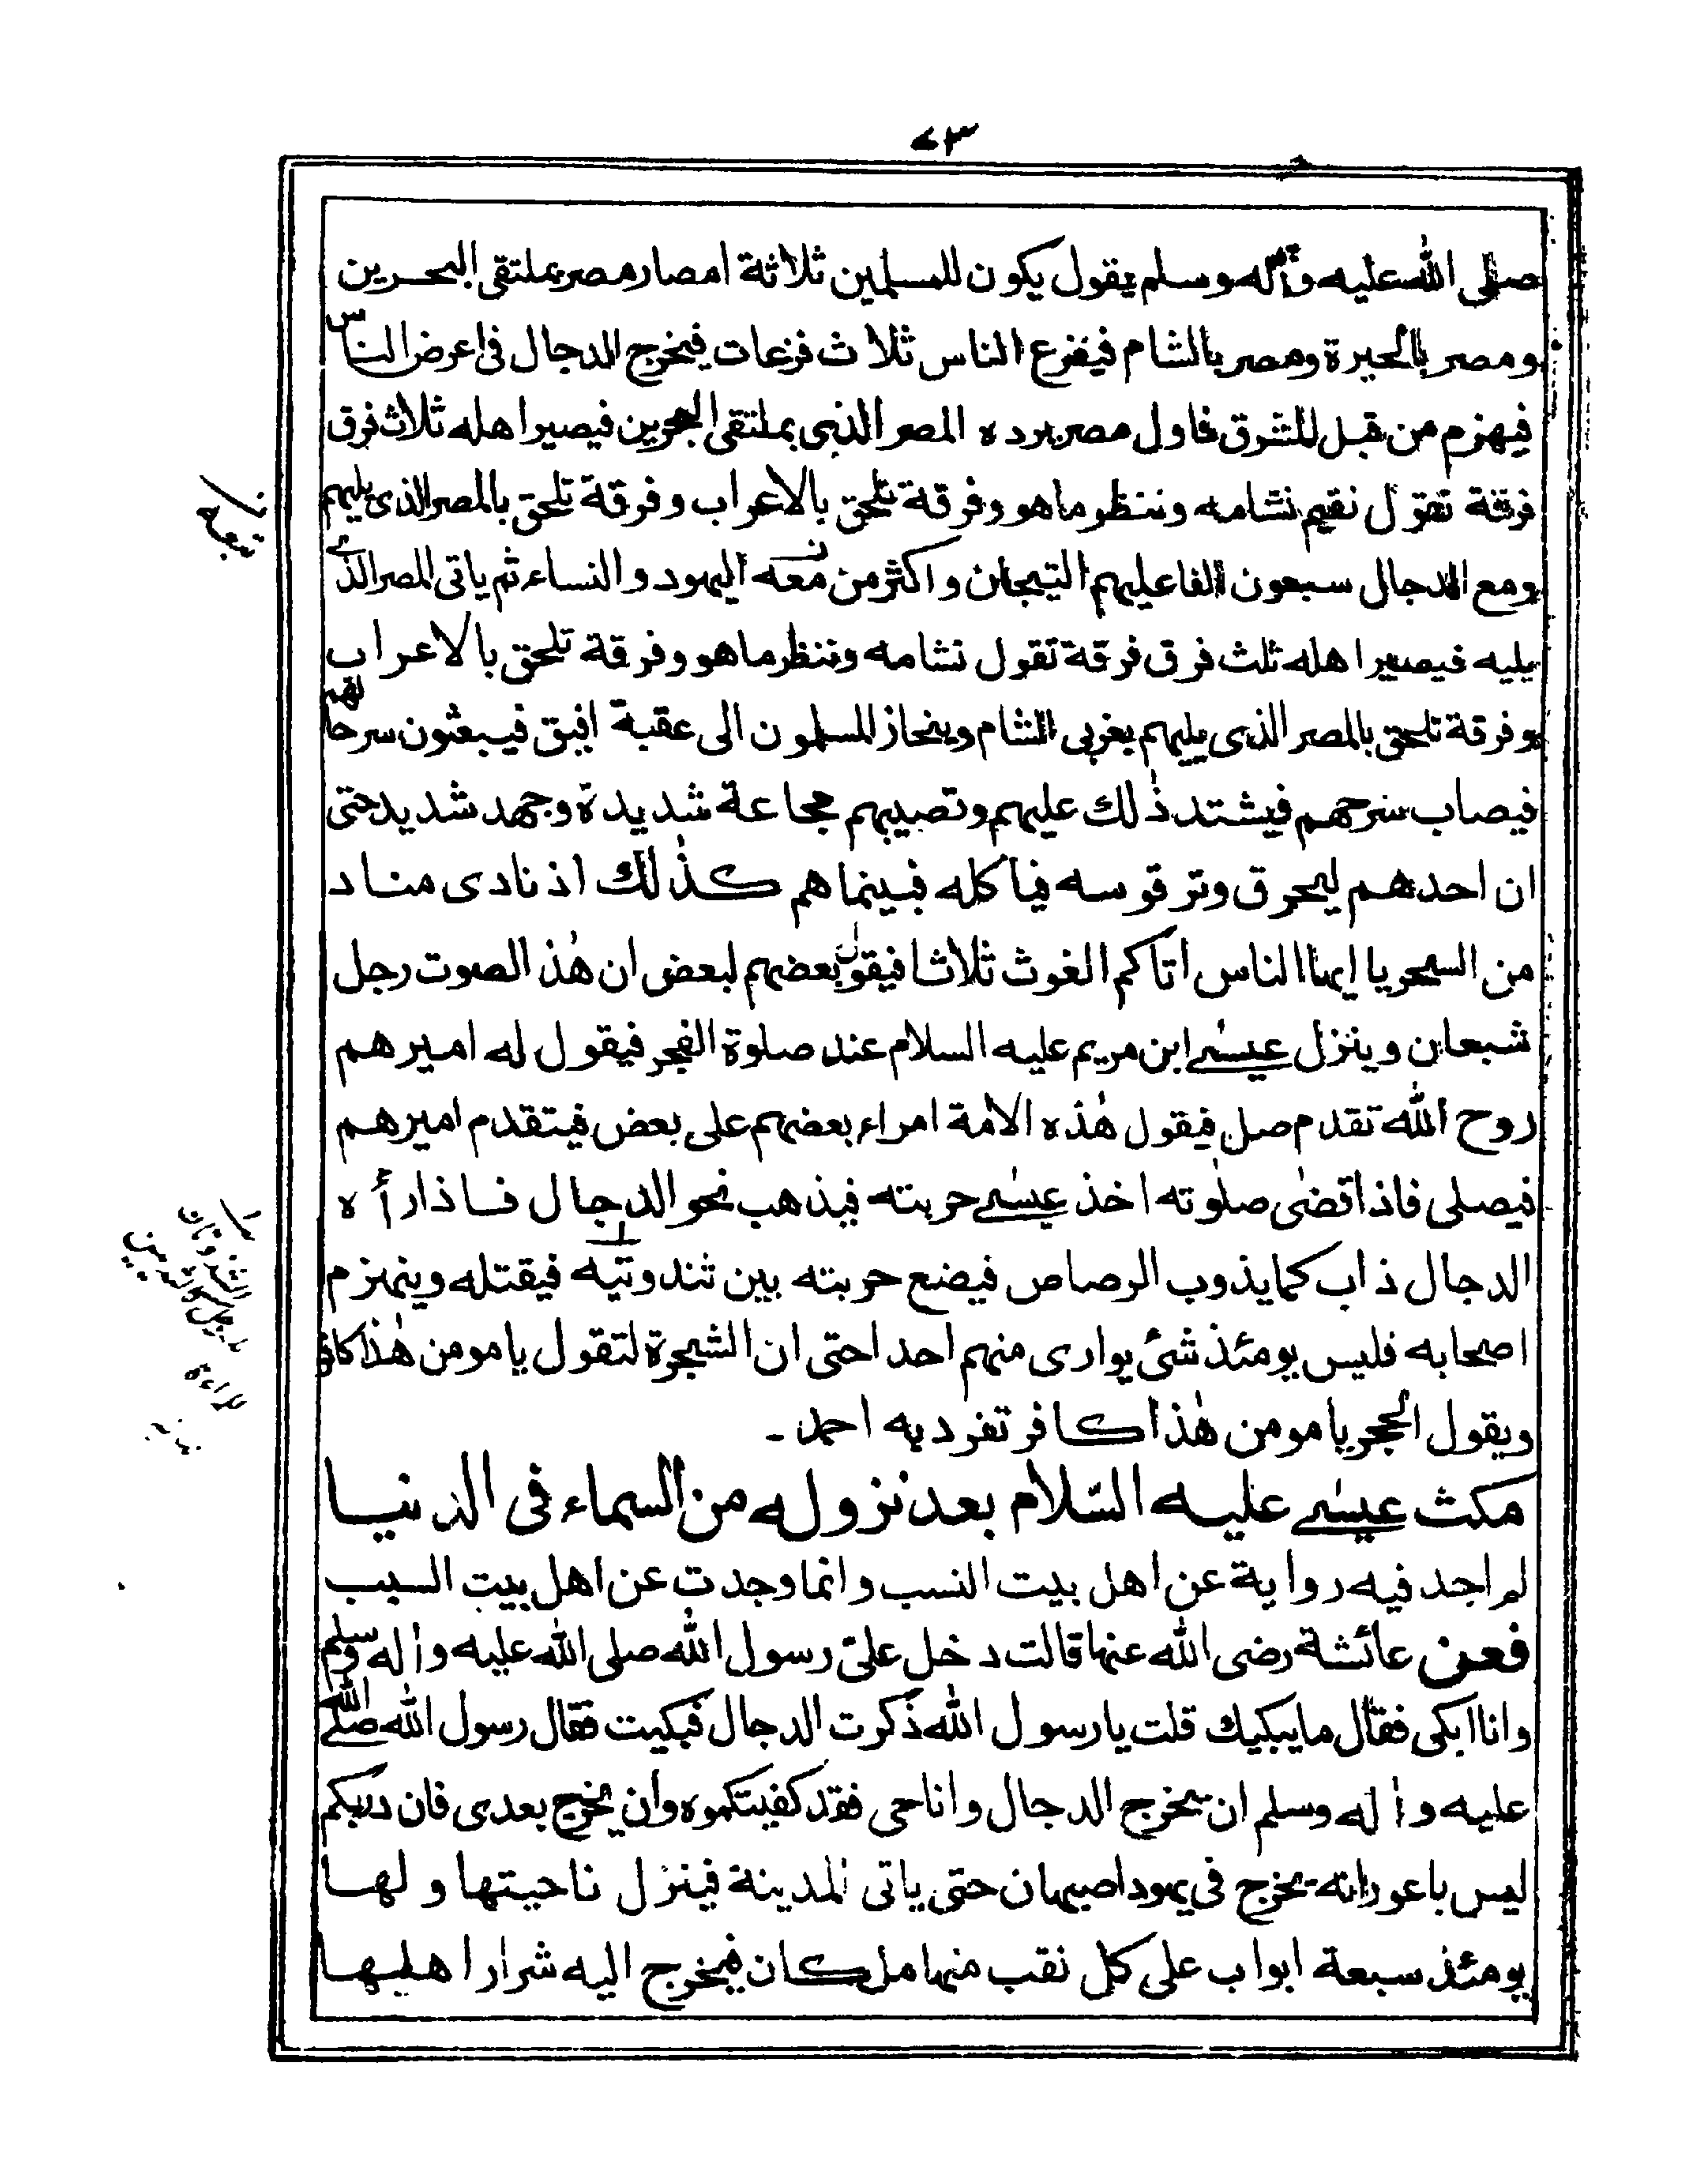 ٧٣
صلى الله عليه وآله وسلم يقول يكون للمسلمين ثلاثة امصار مصر بملتقى البحرين
ومصر بالحيرة ومصر بالشام فيفزع الناس ثلاث فزعات فيخرج الدجال فى اعرض الناس
فيهزم من قبل المشرق فاول مصر برده المصر الذى بملتقى البحرين فيصير اهله ثلاث فرق
فرقة تقول نقيم نشامه وننظر ما هو وفرقة تلحق بالاعراب وفرقة تلحق بالمصر الذى يليهم
ومع الدجال سبعون الفا عليهم التيجان واكثر من معه اليهود والنساء ثم ياتى المصر الذى
يليه فيصير اهله ثلث فرق فرقة تقول نشامه وننظر ما هو وفرقة تلحق بالاعراب
وفرقة تلحق بالمصر الذى يليهم بغربى الشام وينحاز المسلمون الى عقبة افيق فيبعثون سرحا لهم
فيصاب سرحهم فيشتد ذلك عليهم وتصيبهم مجاعة شديدة وجهد شديد حتى
ان احدهم ليحرق وتر قوسه فياكله فبينما هم كذلك اذ نادى مناد
من السحر يا ايها الناس اتاكم الغوث ثلاثا فيقول بعضهم لبعض ان هذا لصوت رجل
شبعان وينزل عيسى ابن مريم عليه السلام عند صلوة الفجر فيقول له اميرهم
روح الله تقدم صل فيقول هذه الامة امراء بعضهم على بعض فيتقدم اميرهم
فيصلى فاذا قضى صلوته اخذ عيسى حربته فيذهب نحو الدجال فاذا رأه
الدجال ذاب كما يذوب الرصاص فيضع حربته بين ثندوتيه فيقتله وينهزم
اصحابه فليس يومئذ شئ يوارى منهم احدا حتى ان الشجرة لتقول يا مومن هذا كافر
ويقول الحجر يا مومن هذا كافر تفرد به احمد ۔
مكث عيسى عليه السّلام بعد نزوله من السماء فى الدنيا
لم اجد فيه رواية عن اهل بيت النسب وانما وجدت عن اهل بيت السبب
فعن عائشة رضى الله عنها قالت دخل علىّ رسول الله صلى الله عليه واٰله وسلم
وانا ابكى فقال ما يبكيك قلت يا رسول الله ذكرت الدجال فبكيت فقال رسول الله صلى الله
عليه واٰله وسلم ان يخرج الدجال وانا حى فقد كفيتكموه وان يخرج بعدى فان ربكم
ليس باعور انه يخرج فى يهود اصبهان حتى ياتى المدينة فينزل ناحيتها ولها
يومئذ سبعة ابواب على كل نقب منها ملكان فيخرج اليه شرار اهلها